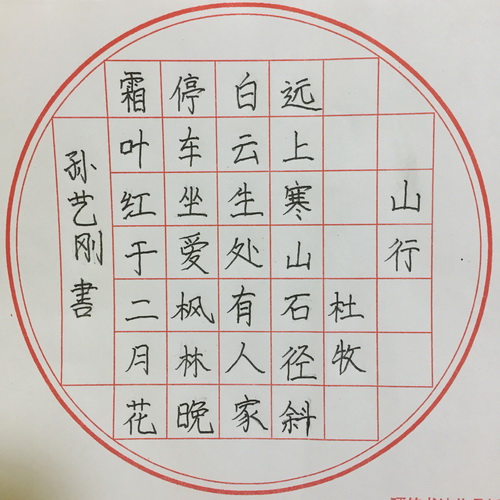 山行
杜牧
远上寒山石径斜
白云生处有人家
停车坐爱枫林晚
霜叶红于二月花
孙艺刚書